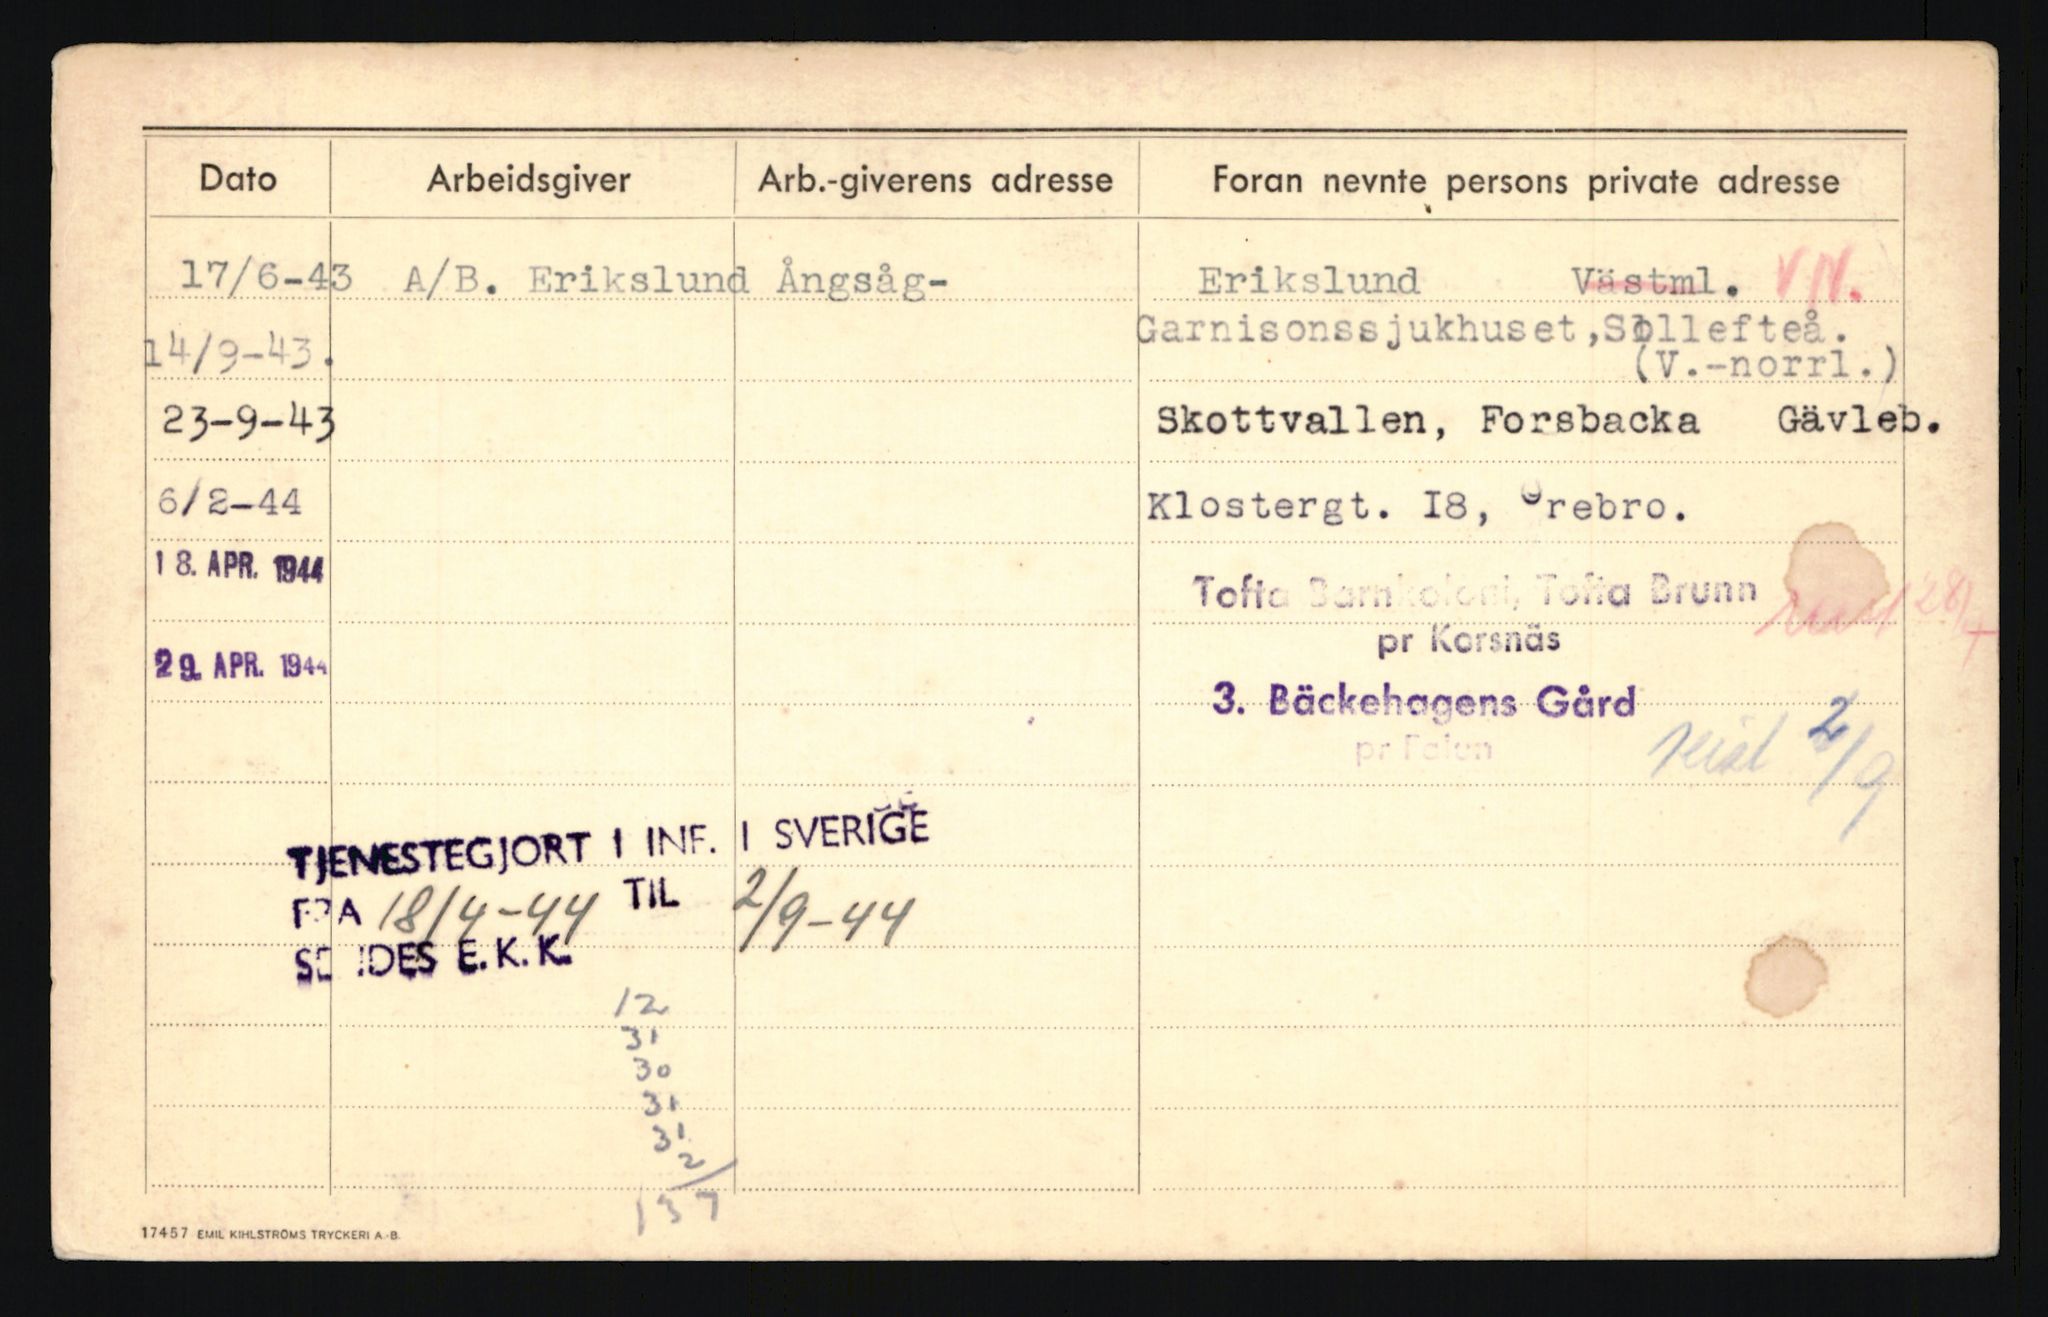 Dato Arbeidsgiver Arb.-giverens adresse Foran nevnte persons private adresse
17/6-43 A/B. Erikslund Ångsåg- Erikslund Västml. VN.
14/9-43. Garnisonssjukhuset, Sollefteå.
(V.-norrl.)
23-9-43 Skottvallen, Forsbacka Gävleb.
6/2-44 Klostergt. I8, Örebro.
18. APR. 1944 Tofta Barnkoloni, Tofta Brunn
28/4
pr Korsnäs
29. APR. 1944 3. Bäckehagens Gård
pr Falun
reist 2/9
TJENESTEGJORT I INF. I SVERIGE
FRA 18/4-44 TIL 2/9-44
SENDES E.K.K.
12
31
30
31
31
2
137
17457 EMIL KIHLSTRÖMS TRYCKERI A.-B.